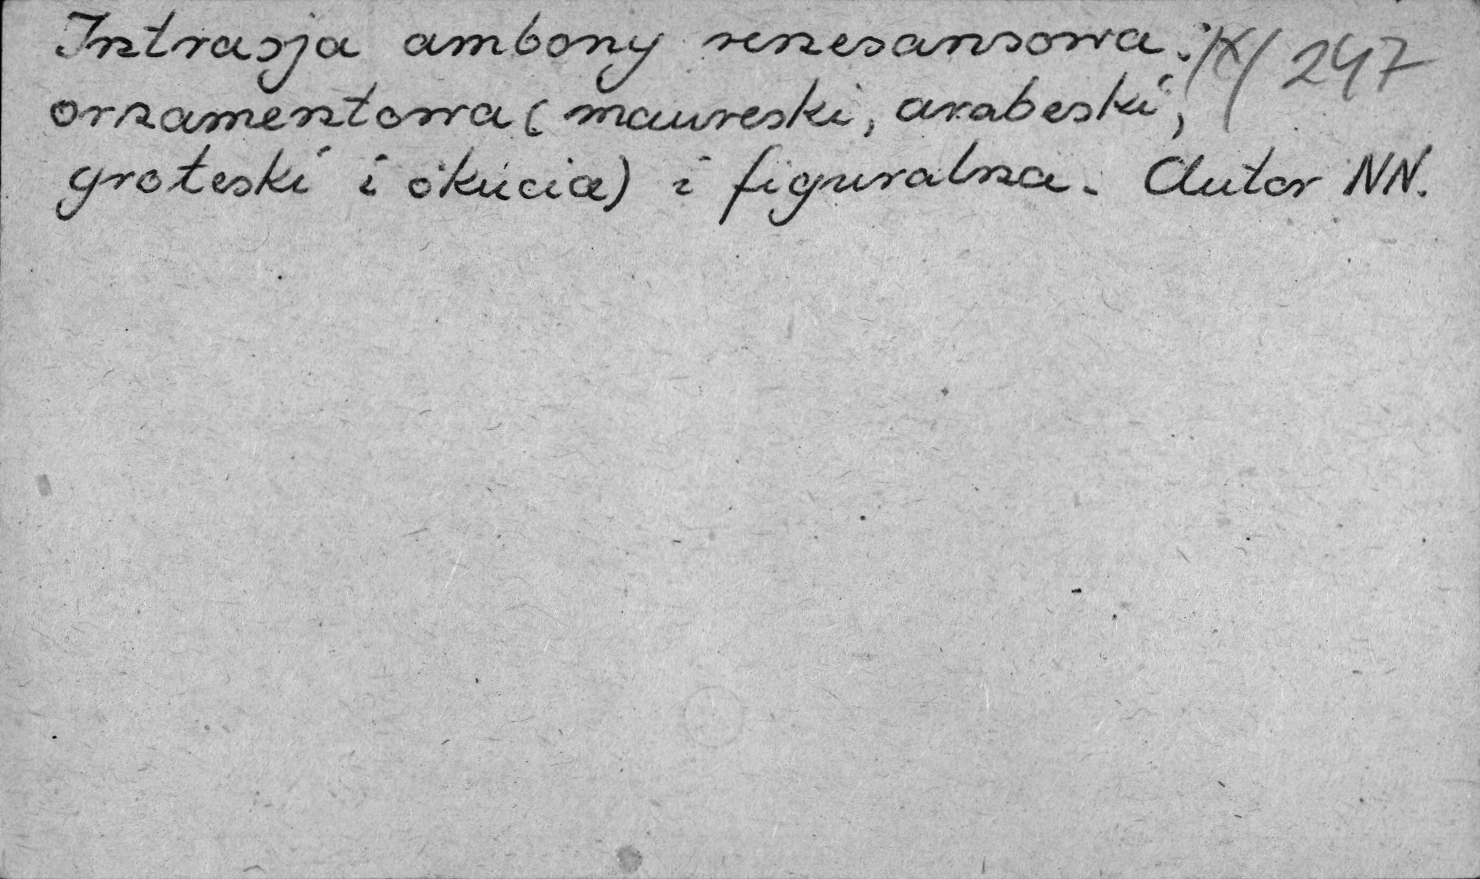 Intrasja ambony renesansowa: (X/247
ornamentowa (maureski, arabeski,
groteski i okucia) i figuralna. Autor NN.